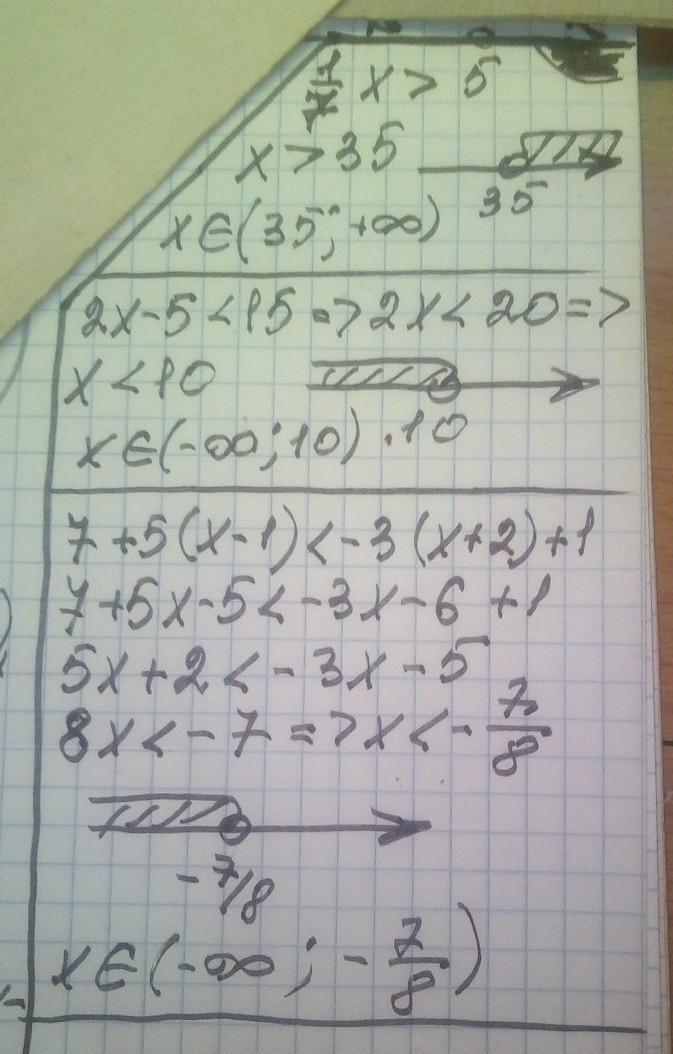 1/7 x > 5
x > 35
35
x∈(35; +∞)
2x-5<15 => 2x<20 =>
x<10
x∈(-∞; 10) . 10
7+5(x-1)<-3(x+2)+1
7+5x-5<-3x-6+1
5x+2<-3x-5
8x<-7 => x<-7/8
-7/8
x∈(-∞; -7/8)